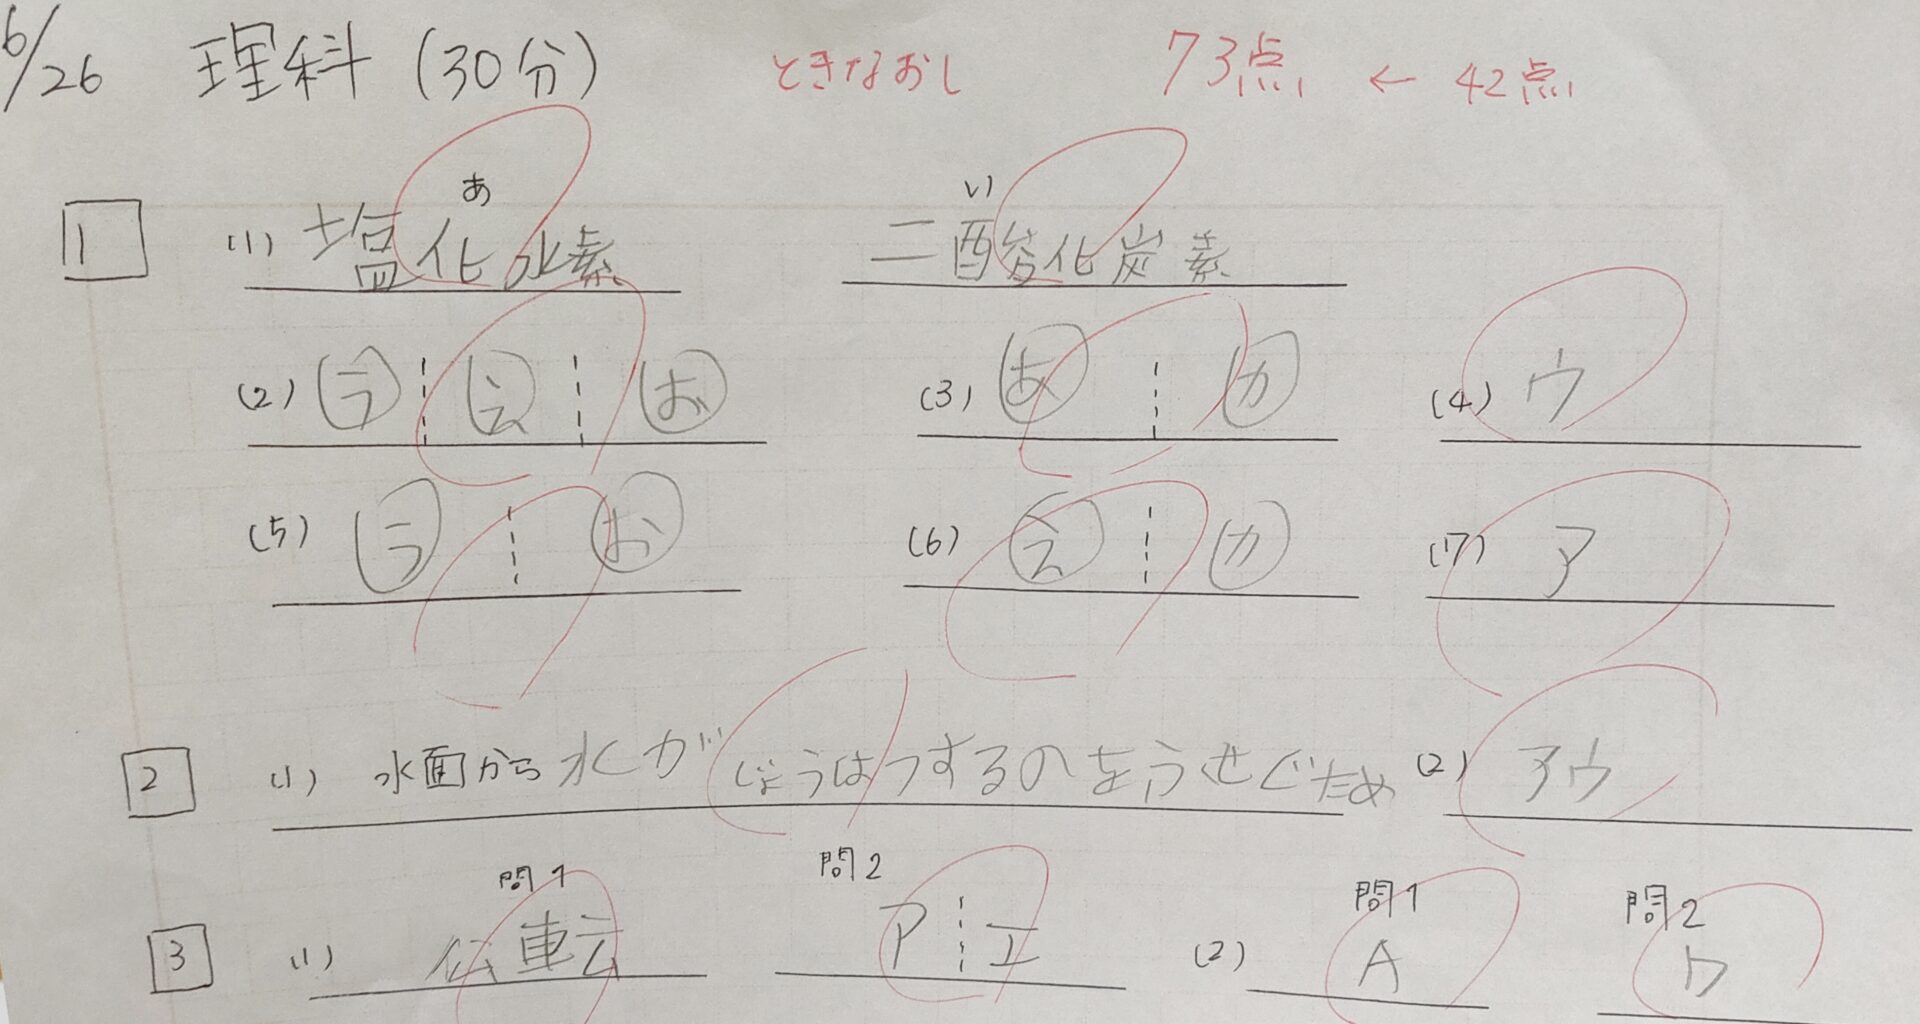 6/26 理科 (30分) ときなおし 73点 ← 42点
あ い
1 (1) 塩化水素 二酸化炭素
(2) う え お (3) あ か (4) ウ
(5) う お (6) え か (7) ア
2 (1) 水面から水がじょうはつするのをふせぐため (2) アウ
問1 問2 問1 問2
3 (1) 伝転 ア エ (2) A